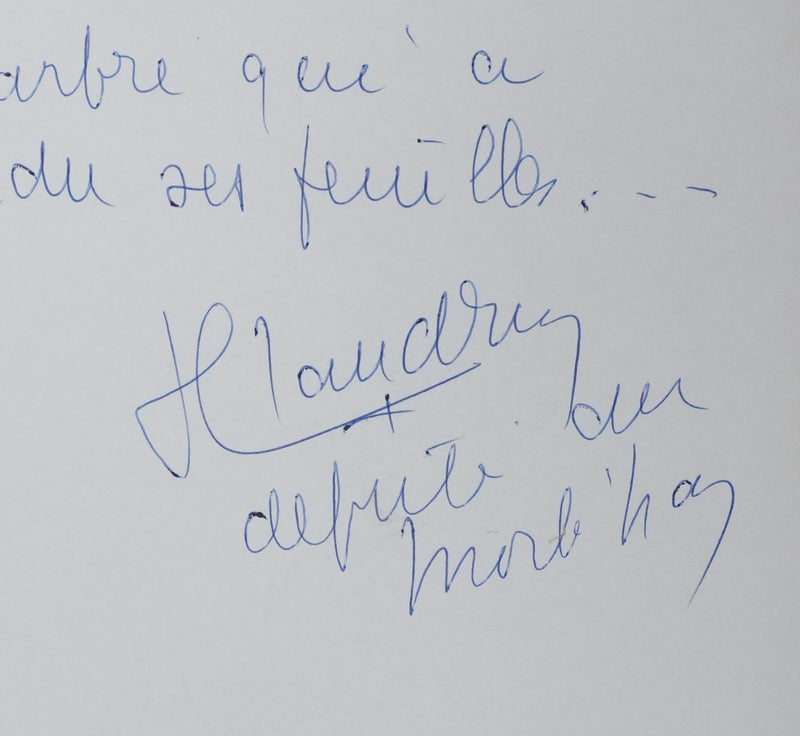 arbre qui a
du ses feuilles. - -
H Laudrin
deputé du
Morbihan